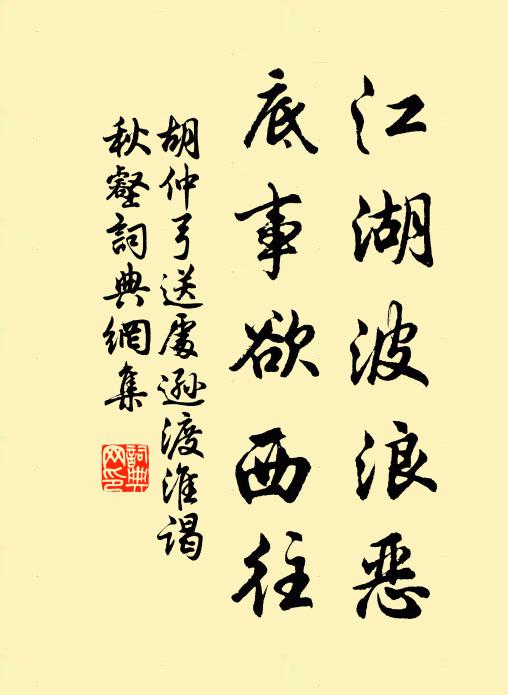 江湖波浪恶
底事欲西往
胡仲弓送处逊渡淮谒
秋壑詞典網集
詞典网印